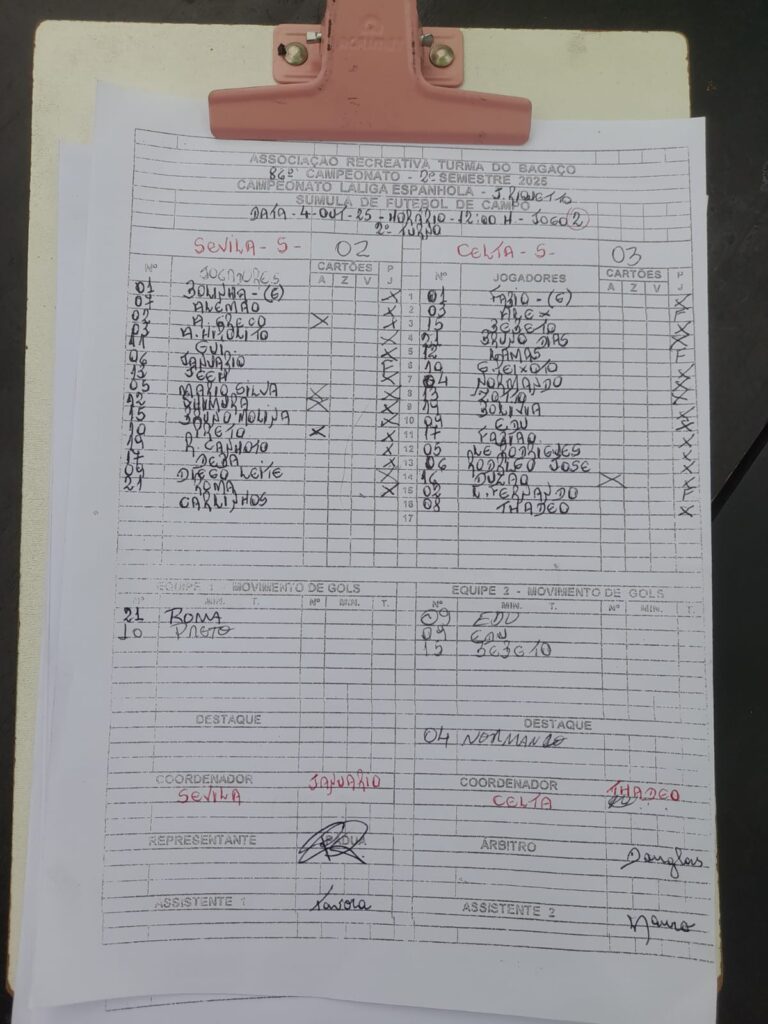 ASSOCIAÇÃO RECREATIVA TURMA DO BAGAÇO
86º CAMPEONATO - 2º SEMESTRE 2025
CAMPEONATO LALIGA ESPANHOLA -
SUMULA DE FUTEBOL DE CAMPO
DATA - 4-OUT-25 - HORÁRIO - 12:00 H - JOGO 2
2º TURNO
SEVILA - S - 02
Nº JOGADORES CARTÕES P
A Z V J
01 BOLINHA - (G) X
07 ALEMÃO
02 A. GRECO X X
03 A. HIPOLITO X
11 GUI X
06 JANUARIO F
13 X
05 MARIO SILVA X X
12 SHIMURA X X
15 BRUNO MOLINA X
10 PRETO X X
19 R. CANHOTO X
17 DEBA X
09 DIEGO LEITE X
21 ROMA X
CARLINHOS
CELTA - S - 03
Nº JOGADORES CARTÕES P
A Z V J
1 01 FABIO - (G) X
2 03 ALEX X
3 15 BEBETO X
4 21 BRUNO DIAS X
5 12 LAMAS F
6 10 G. PEIXOTO X
7 04 NORMANDO X
8 13 X
9 19 BOLIVIA X
10 09 EDU X
11 17 FABIAO X
12 05 LE RODRIGUES X
13 06 RODRIGO JOSE X
14 16 DUZAO X X
15 02 L. FERNANDO F
16 08 THADEO X
17
EQUIPE 1 - MOVIMENTO DE GOLS
Nº MIN. T. Nº MIN. T.
21 ROMA
10 PRETO
EQUIPE 2 - MOVIMENTO DE GOLS
Nº MIN. T. Nº MIN. T.
09 EDU
09 EDU
15 BEBETO
DESTAQUE
DESTAQUE
04 NORMANDO
COORDENADOR JANUARIO
SEVILA
COORDENADOR THADEO
CELTA
REPRESENTANTE PADUA
ÁRBITRO Douglas
ASSISTENTE 1 Tavora
ASSISTENTE 2 Mauro